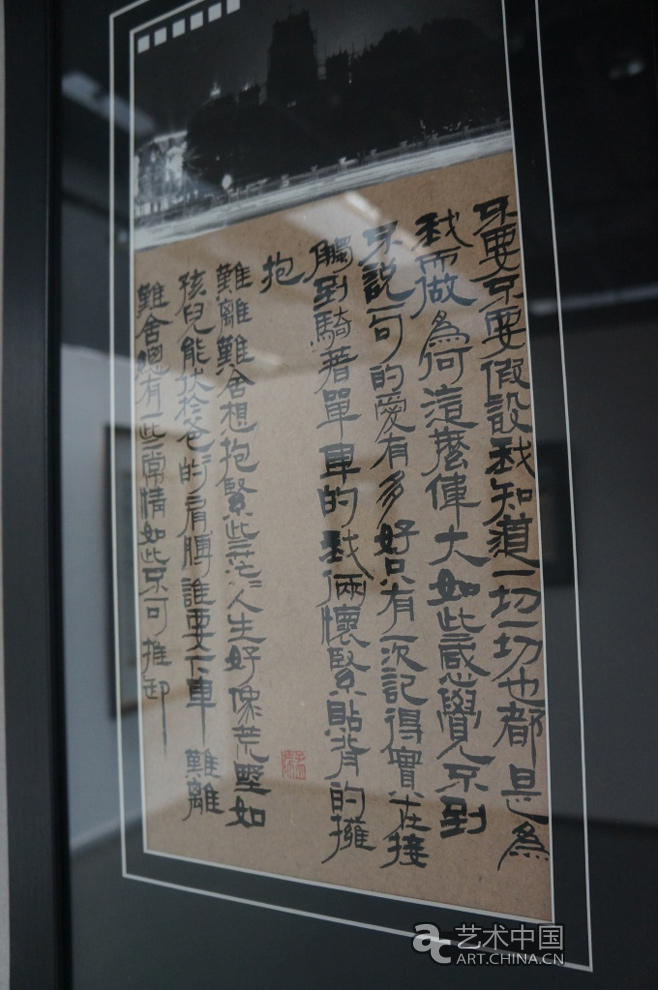 不要不要假設我知道一切一切也都是為
我而做為何這麼偉大如此感覺不到
不說一句的愛有多好只有一次記得實在接
觸到騎著單車的我倆懷緊貼背的擁
抱
難離難舍想抱緊些茫茫人生好像荒野如
孩兒能伏於爸爸的肩膊誰要下車難離
難舍總有一些常情如此不可推卸
艺术中国
ART.CHINA.CN